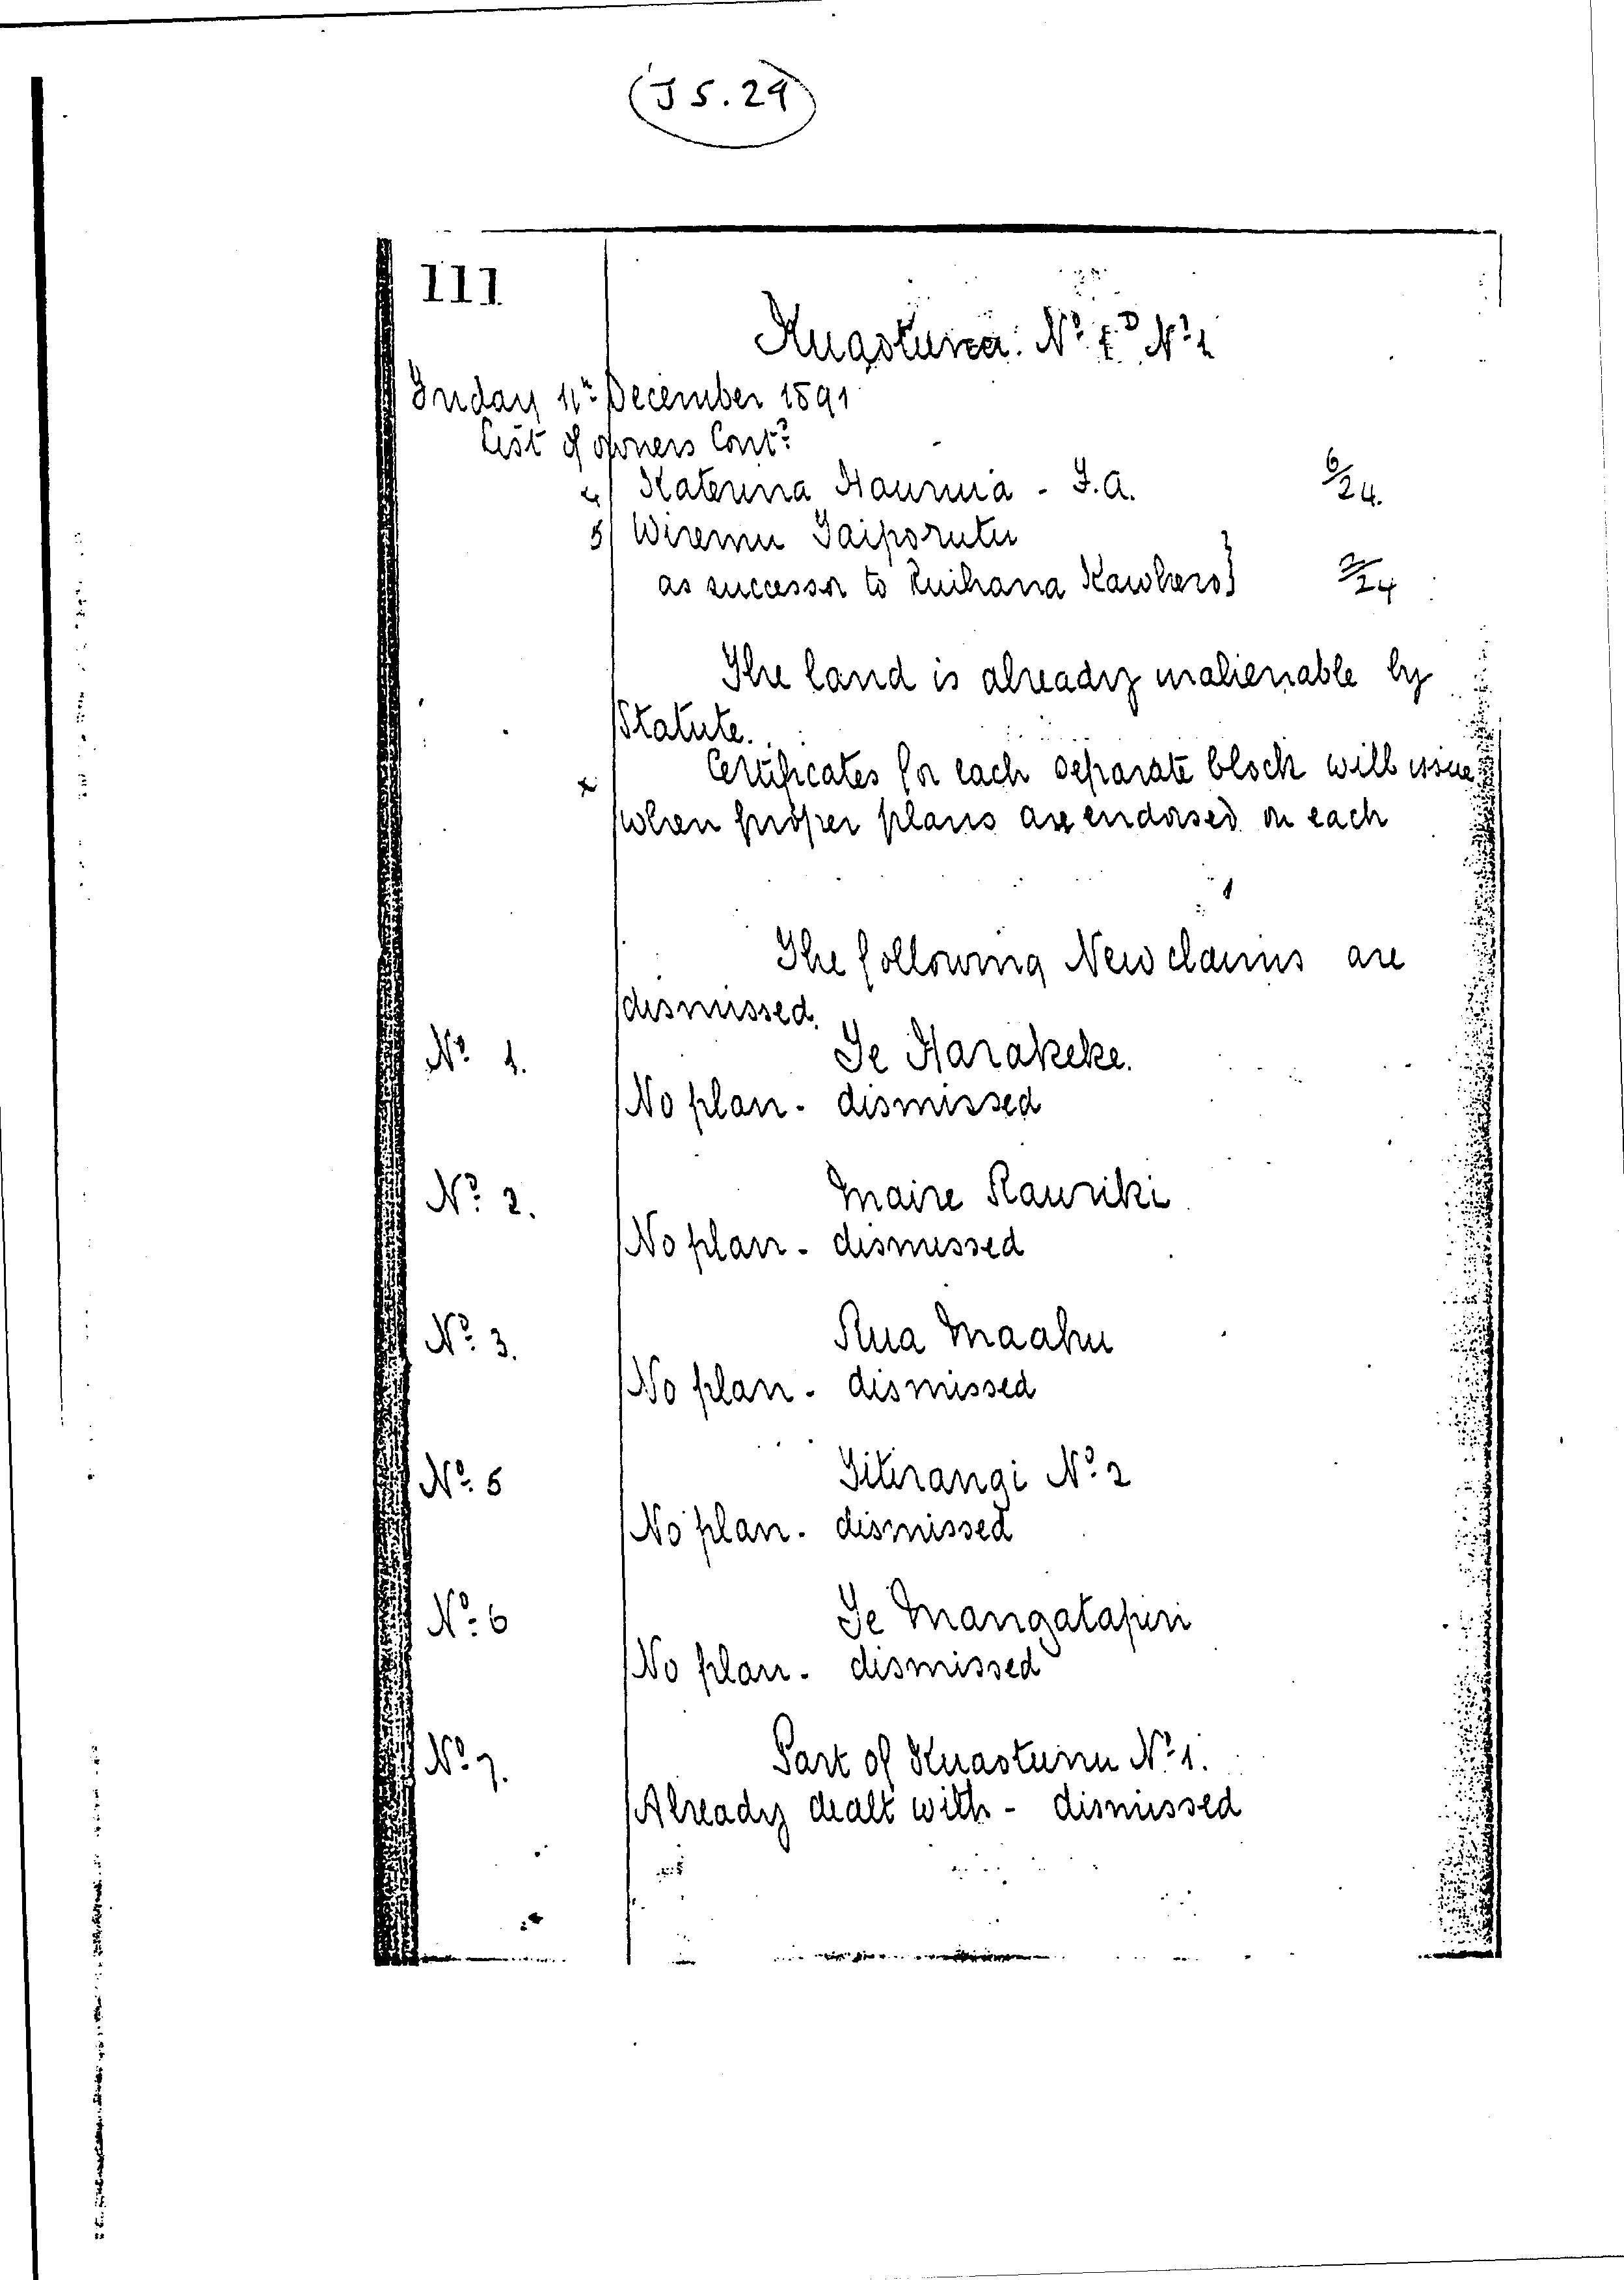 J S. 29
111
Kuaotunu: Nº 1 D Nº 2
Friday 11th December 1891
List of owners Contd
4/ Katerina Hauruia - F.A. 6/24.
5/ Wiremu Taiporutu
as successor to Ruihana Kawhero} 2/24
The land is already inalienable by
Statute.
x Certificates for each separate block will issue
when proper plans are endorsed on each
The following New claims are
dismissed.
Nº 1. Te Harakeke.
No plan - dismissed
Nº 2. Maire Rauriki
No plan - dismissed
Nº 3. Rua Maahu
No plan - dismissed
Nº 5 Titirangi Nº 2
No plan - dismissed
Nº 6 Te Mangatapiri
No plan - dismissed
Nº 7. Part of Kuaotunu Nº 1.
Already dealt with - dismissed